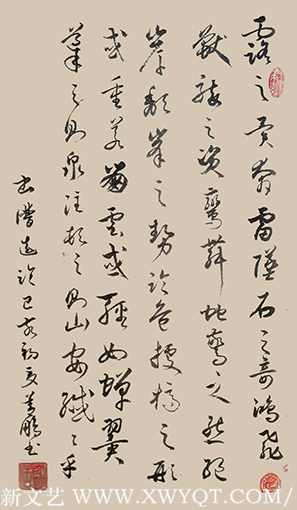 露之異奔雷墜石之奇鴻飛
獸駭之資鸞舞蛇驚之態絕
岸頹峯之勢臨危據槁之形
或重若崩雲或輕如蟬翼
導之則泉注頓之則山安纖〻乎
書譜 己亥初夏 鵬書
新文艺 WWW.XWYQT.COM/